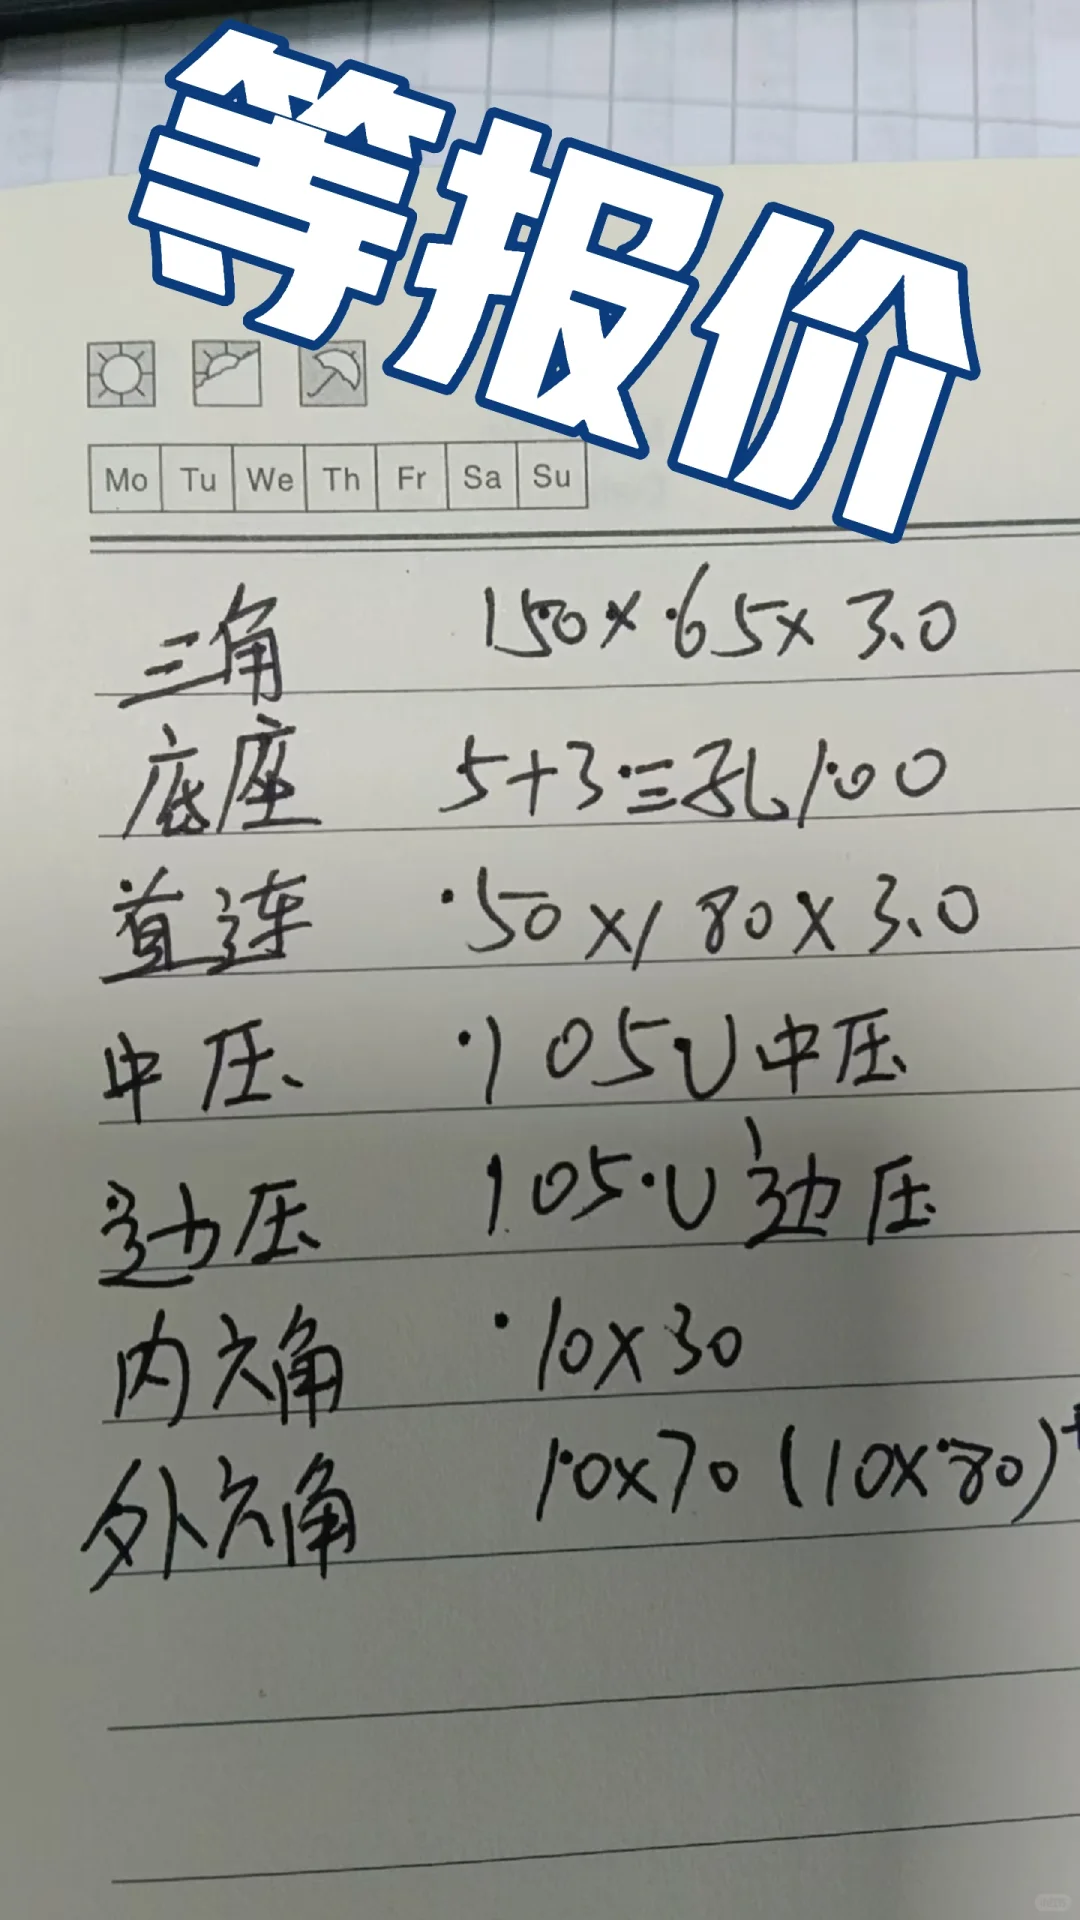 等报价
Mo Tu We Th Fr Sa Su
三角 150×65×3.0
底座 5+3三孔100
直连 50×180×3.0
中压 105U中压
边压 105U边压
内六角 10×30
外六角 10×70(10×80)